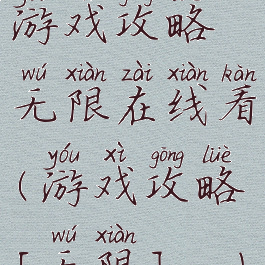 游戏攻略
wú xiàn zài xiàn kàn
无限在线看
yóu xì gōng lüè
(游戏攻略
wú xiàn
[无限]